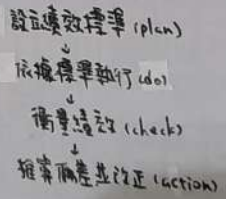 設立績效標準 (plan)
↓
依據標準執行 (do)
↓
衡量績效 (check)
↓
探索偏差並改正 (action)